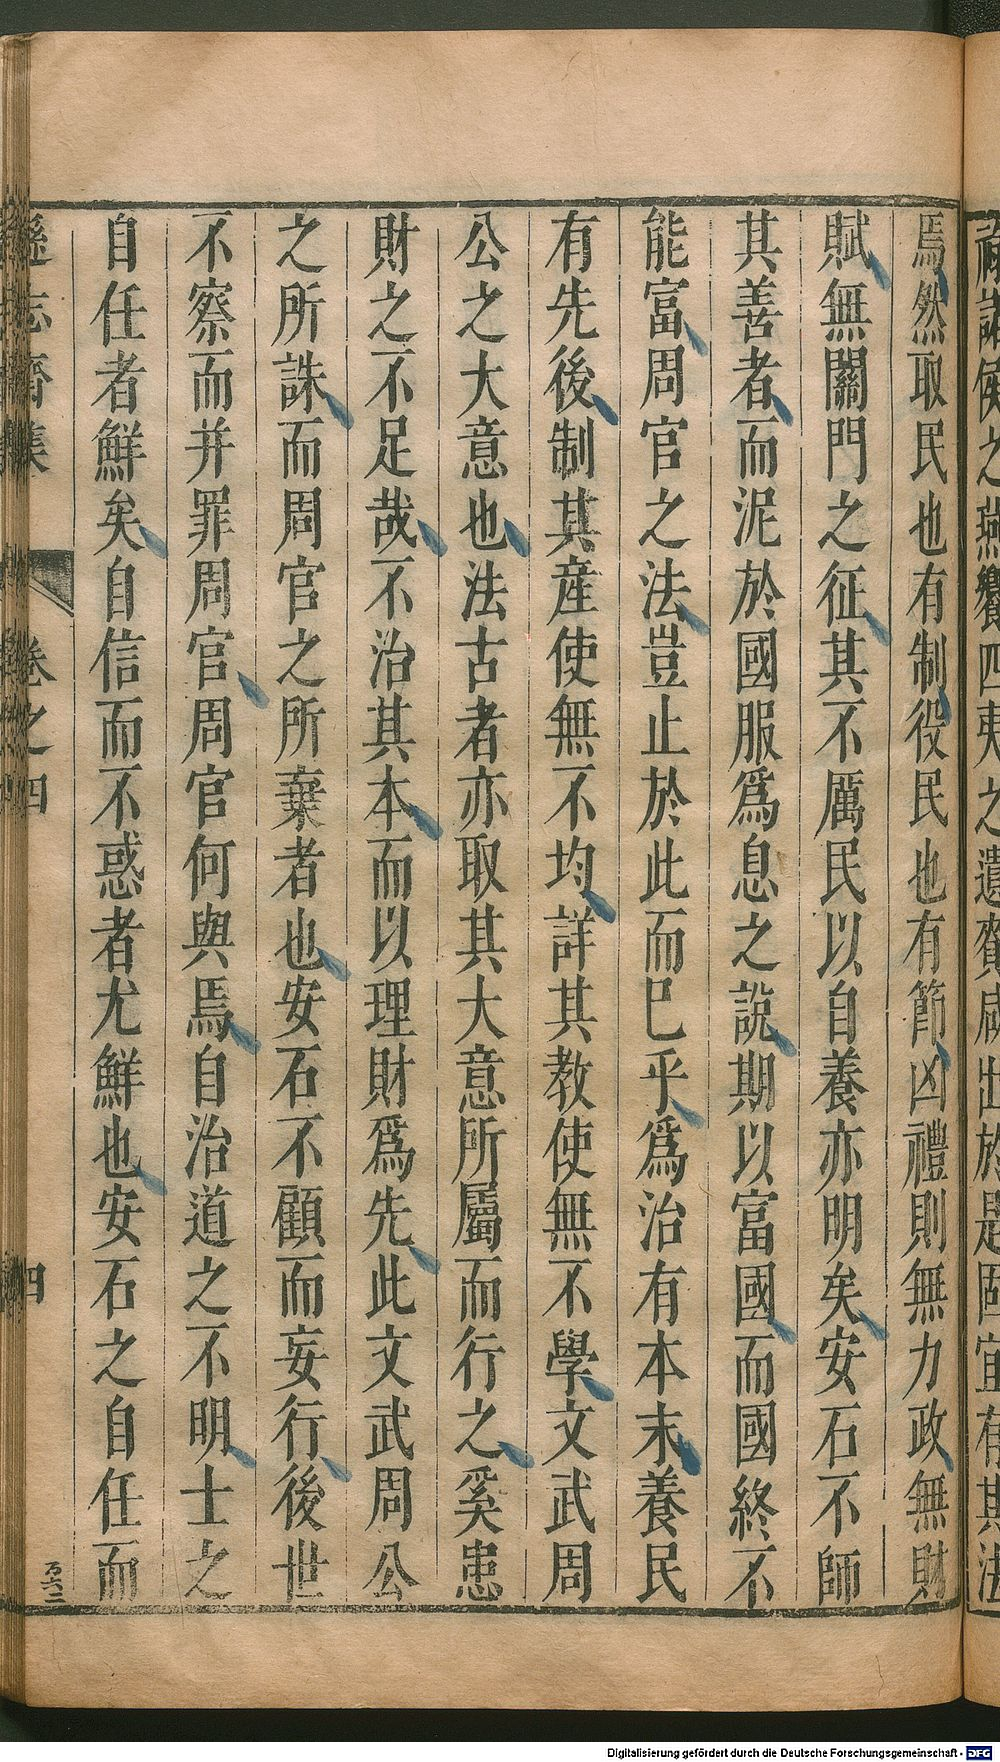 祿諸侯之燕饗四夷之遺賚咸出於是固宜有其法
焉然取民也有制役民也有節凶禮則無力政無財
賦無關門之征其不厲民以自養亦明矣安石不師
其善者而泥於國服爲息之說期以富國而國終不
能富周官之法豈止於此而已乎爲治有本末養民
有先後制其產使無不均詳其教使無不學文武周
公之大意也法古者亦取其大意所屬而行之奚患
財之不足哉不治其本而以理財爲先此文武周公
之所誅而周官之所棄者也安石不顧而妄行後世
不察而并罪周官周官何與焉自治道之不明士之
自任者鮮矣自信而不惑者尤鮮也安石之自任而
遜志齋集
卷之四
四
Digitalisierung gefördert durch die Deutsche Forschungsgemeinschaft - DFG